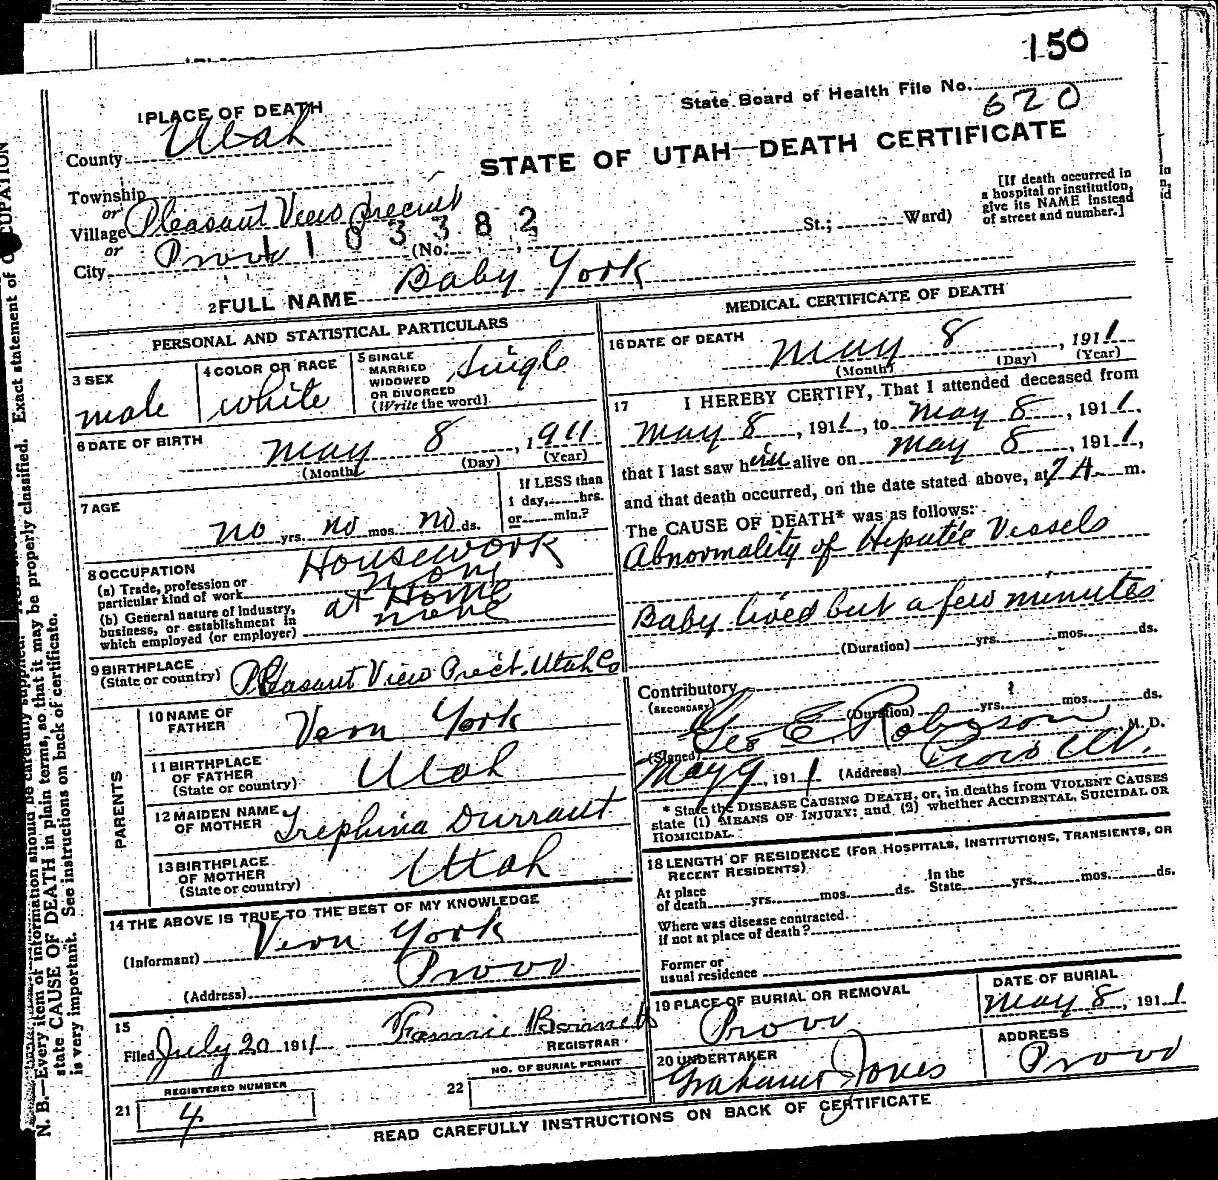 150
1 PLACE OF DEATH
State Board of Health File No. 620
County Utah
STATE OF UTAH—DEATH CERTIFICATE
Township
or
Village Pleasant View Precinct
or
City Provo
1103382
(No. St.; Ward)
[If death occurred in
a hospital or institution,
give its NAME instead
of street and number.]
2 FULL NAME Baby York
PERSONAL AND STATISTICAL PARTICULARS
3 SEX
male
4 COLOR OR RACE
white
5 SINGLE
MARRIED
WIDOWED
OR DIVORCED
(Write the word)
Single
6 DATE OF BIRTH
May 8, 1911
(Month) (Day) (Year)
7 AGE
no yrs. no mos. no ds.
If LESS than
1 day, hrs.
or min.?
8 OCCUPATION
(a) Trade, profession or
particular kind of work
Housework
none
(b) General nature of Industry,
business, or establishment in
which employed (or employer)
at Home
none
9 BIRTHPLACE
(State or country) Pleasant View Prect. Utah Co
PARENTS
10 NAME OF
FATHER
Vern York
11 BIRTHPLACE
OF FATHER
(State or country)
Utah
12 MAIDEN NAME
OF MOTHER
Trephina Durrant
13 BIRTHPLACE
OF MOTHER
(State or country)
Utah
14 THE ABOVE IS TRUE TO THE BEST OF MY KNOWLEDGE
(Informant) Vern York
(Address) Provo
15
Filed July 20 1911
REGISTRAR
REGISTERED NUMBER
21 4
NO. OF BURIAL PERMIT
22
MEDICAL CERTIFICATE OF DEATH
16 DATE OF DEATH
May 8, 1911
(Month) (Day) (Year)
17 I HEREBY CERTIFY, That I attended deceased from
May 8, 1911, to May 8, 1911,
that I last saw him alive on May 8, 1911,
and that death occurred, on the date stated above, at 7 A m.
The CAUSE OF DEATH* was as follows:
Abnormality of Hepatic Vessels
Baby lived but a few minutes
(Duration) yrs. mos. ds.
Contributory
(SECONDARY)
(Duration) yrs. mos. ds.
(Signed) Geo E. Robison M. D.
May 9, 1911 (Address) Provo
* State the DISEASE CAUSING DEATH, or, in deaths from VIOLENT CAUSES
state (1) MEANS OF INJURY; and (2) whether ACCIDENTAL, SUICIDAL OR
HOMICIDAL.
18 LENGTH OF RESIDENCE (FOR HOSPITALS, INSTITUTIONS, TRANSIENTS, OR
RECENT RESIDENTS)
At place
of death yrs. mos. ds.
In the
State yrs. mos. ds.
Where was disease contracted
if not at place of death?
Former or
usual residence
19 PLACE OF BURIAL OR REMOVAL
Provo
DATE OF BURIAL
May 8, 1911
20 UNDERTAKER
Jones
ADDRESS
Provo
READ CAREFULLY INSTRUCTIONS ON BACK OF CERTIFICATE
N. B.—Every item of information should be carefully supplied.
state CAUSE OF DEATH in plain terms, so that it may be properly classified. Exact statement of OCCUPATION
is very important. See instructions on back of certificate.